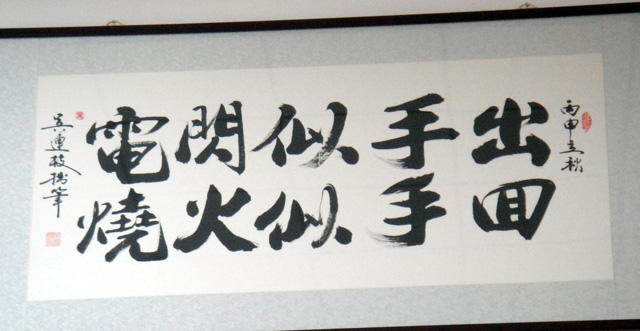 丙申立秋
出手似閃電
回手似火燒
吳連枝筆